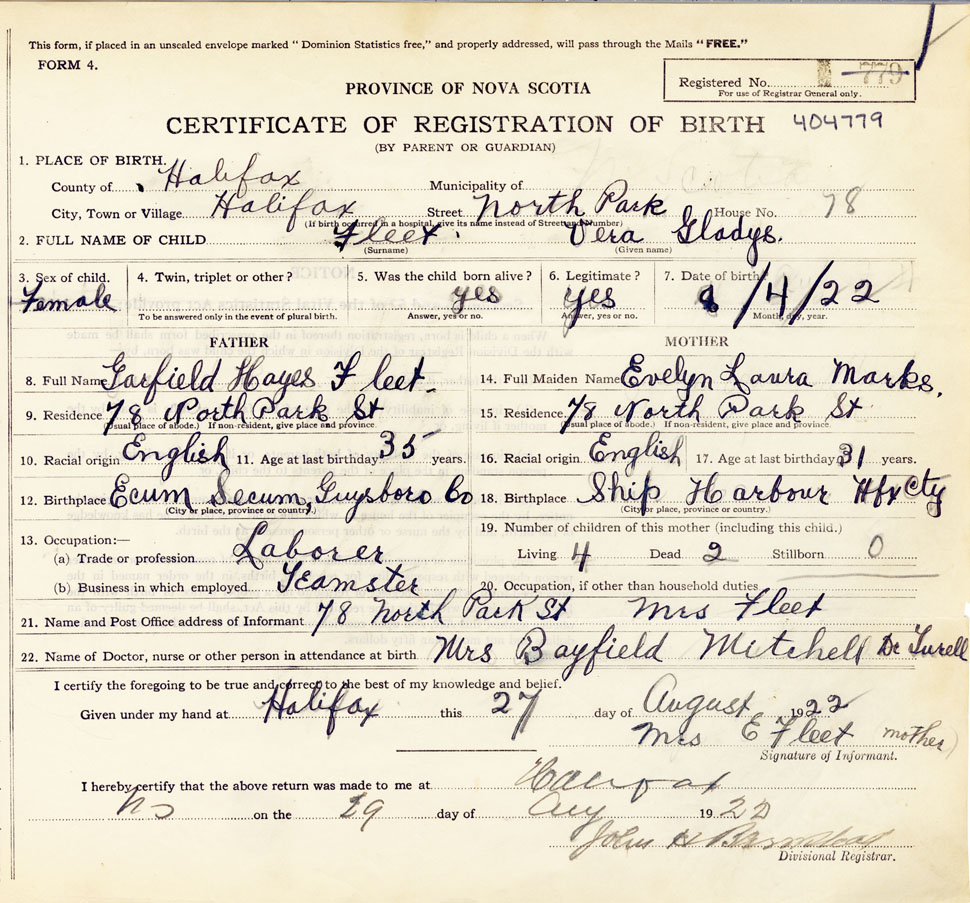 This form, if placed in an unsealed envelope marked "Dominion Statistics free," and properly addressed, will pass through the Mails "FREE."
FORM 4.
Registered No. 779
For use of Registrar General only.
PROVINCE OF NOVA SCOTIA
CERTIFICATE OF REGISTRATION OF BIRTH 404779
(BY PARENT OR GUARDIAN)
1. PLACE OF BIRTH.
County of Halifax Municipality of
City, Town or Village Halifax Street North Park House No. 78
(If birth occurred in a hospital, give its name instead of Street and Number)
2. FULL NAME OF CHILD Fleet. Vera Gladys.
(Surname) (Given name)
3. Sex of child. 4. Twin, triplet or other? 5. Was the child born alive? 6. Legitimate? 7. Date of birth
Female yes yes 8/4/22
To be answered only in the event of plural birth. Answer, yes or no. Answer, yes or no. Month, day, year.
FATHER MOTHER
8. Full Name Garfield Hayes Fleet. 14. Full Maiden Name Evelyn Laura Marks.
9. Residence 78 North Park St 15. Residence. 78 North Park St
(Usual place of abode.) If non-resident, give place and province (Usual place of abode.) If non-resident, give place and province.
10. Racial origin English 11. Age at last birthday 35 years. 16. Racial origin English 17. Age at last birthday 31 years.
12. Birthplace Ecum Secum, Guysboro Co 18. Birthplace Ship Harbour Hfx Cty
(City or place, province or country.) (City or place, province or country.)
19. Number of children of this mother (including this child.)
13. Occupation:—
(a) Trade or profession Laborer Living 4 Dead 2 Stillborn 0
(b) Business in which employed Teamster 20. Occupation, if other than household duties
21. Name and Post Office address of Informant 78 North Park St Mrs Fleet
22. Name of Doctor, nurse or other person in attendance at birth Mrs Bayfield Mitchell Dr Turell
I certify the foregoing to be true and correct to the best of my knowledge and belief.
Given under my hand at Halifax this 27 day of August 1922
Mrs E Fleet (mother)
Signature of Informant.
I hereby certify that the above return was made to me at Halifax
NS on the 29 day of Aug 1922
John H
Divisional Registrar.